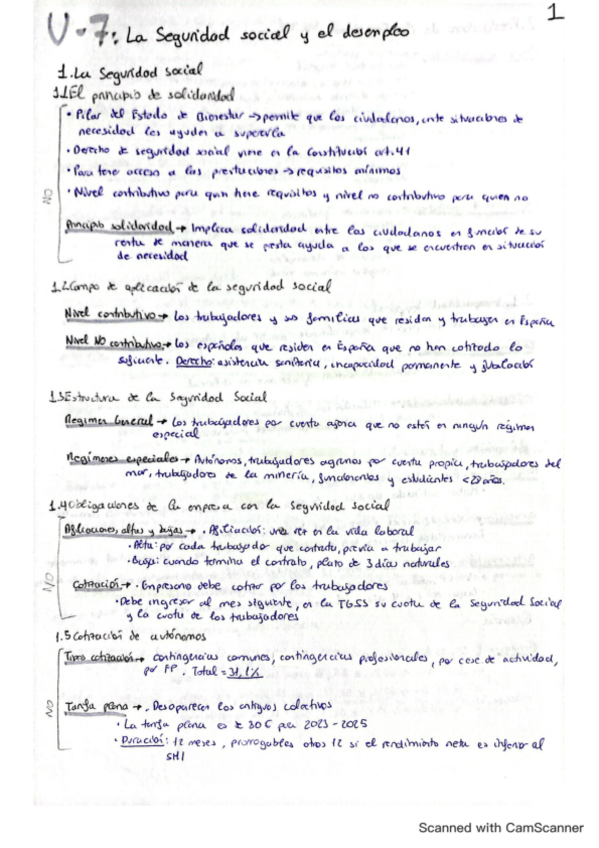 1
U-7: La Seguridad social y el desempleo
1. La Seguridad social
1.1 El principio de solidaridad
• Pilar del Estado de Bienestar → permite que los ciudadanos, ante situaciones de
necesidad les ayuden a superarla
• Derecho de seguridad social viene en la Constitución art. 41
• Para tener acceso a las prestaciones → requisitos mínimos
• Nivel contributivo para quien tiene requisitos y nivel no contributivo para quien no
NO
Principio solidaridad → Implica solidaridad entre los ciudadanos en función de su
renta de manera que se presta ayuda a los que se encuentran en situación
de necesidad
1.2 Campo de aplicación de la seguridad social
Nivel contributivo → los trabajadores y sus familias que residen y trabajen en España
Nivel NO contributivo → los españoles que residen en España que no han cotizado lo
suficiente. Derecho: asistencia sanitaria, incapacidad permanente y jubilación
1.3 Estructura de la Seguridad Social
Régimen General → los trabajadores por cuenta ajena que no estén en ningún régimen
especial
Regímenes especiales → Autónomos, trabajadores agrarios por cuenta propia, trabajadores del
mar, trabajadores de la minería, funcionarios y estudiantes <28 años.
1.4 Obligaciones de la empresa con la Seguridad Social
Afiliaciones, altas y bajas → • Afiliación: una vez en la vida laboral
• Alta: por cada trabajador que contrata, previa a trabajar
• Baja: cuando termina el contrato, plazo de 3 días naturales
NO
Cotización → • Empresario debe cotizar por los trabajadores
• Debe ingresar al mes siguiente, en la TGSS su cuota de la Seguridad Social
y la cuota de los trabajadores
1.5 Cotización de autónomos
Tipos cotización → contingencias comunes, contingencias profesionales, por cese de actividad,
por FP. Total = 31,1%
NO
Tarifa plana → • Desaparecen los antiguos colectivos
• La tarifa plana es de 80€ para 2023-2025
• Duración: 12 meses, prorrogables otros 12 si el rendimiento neto es inferior al
SMI
Scanned with CamScanner